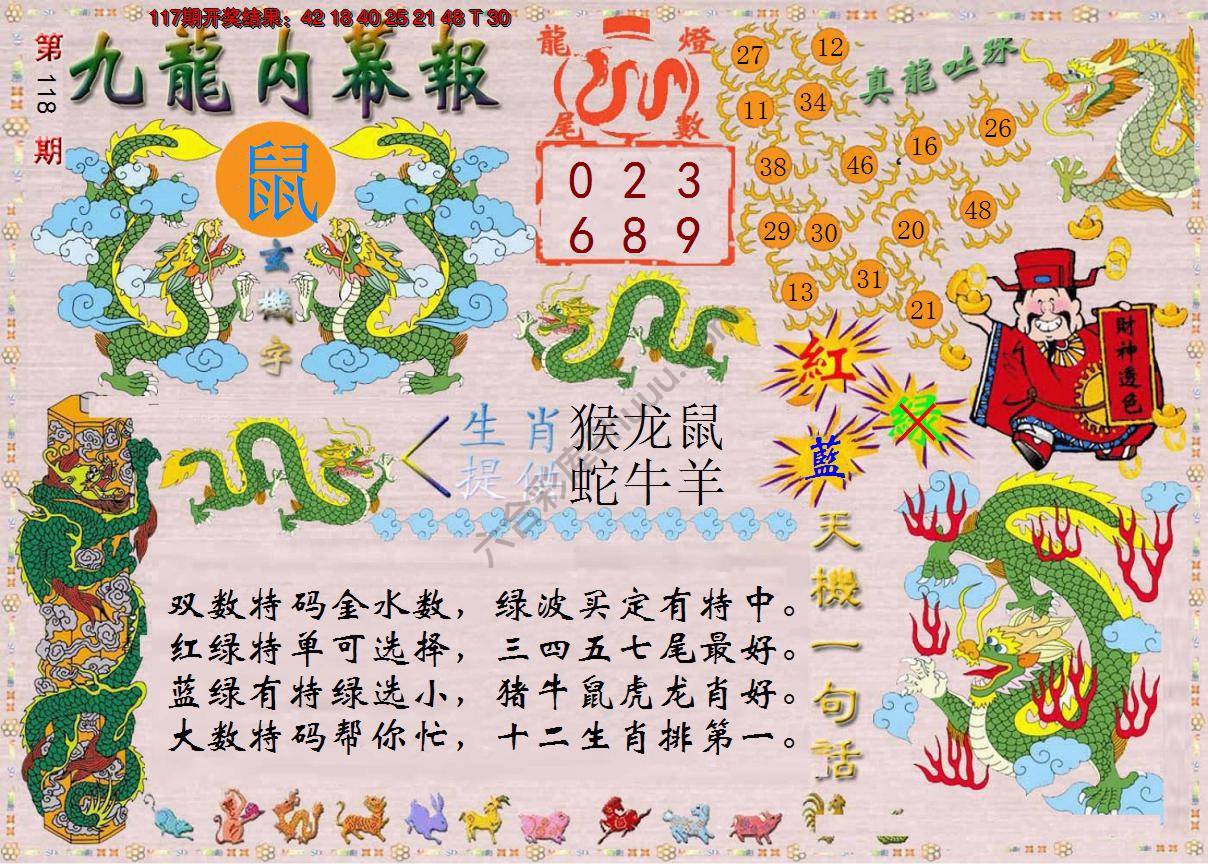 117期开奖结果：42 18 40 25 21 48 T 30
第118期
九龍内幕報
鼠
玄機字
龍燈
尾數
0 2 3
6 8 9
真龍吐珠
27 12
11 34
16 26
38 46
29 30 20 48
13 31 21
財神透色
紅
绿
藍
生肖 猴龙鼠
提供 蛇牛羊
天機一句話
双数特码金水数，绿波买定有特中。
红绿特单可选择，三四五七尾最好。
蓝绿有特绿选小，猪牛鼠虎龙肖好。
大数特码帮你忙，十二生肖排第一。